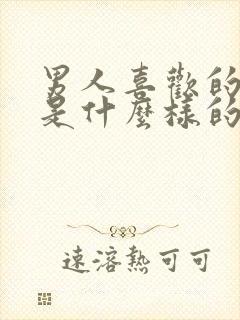 男人喜歡的
是什麼樣的
速溶熱可可